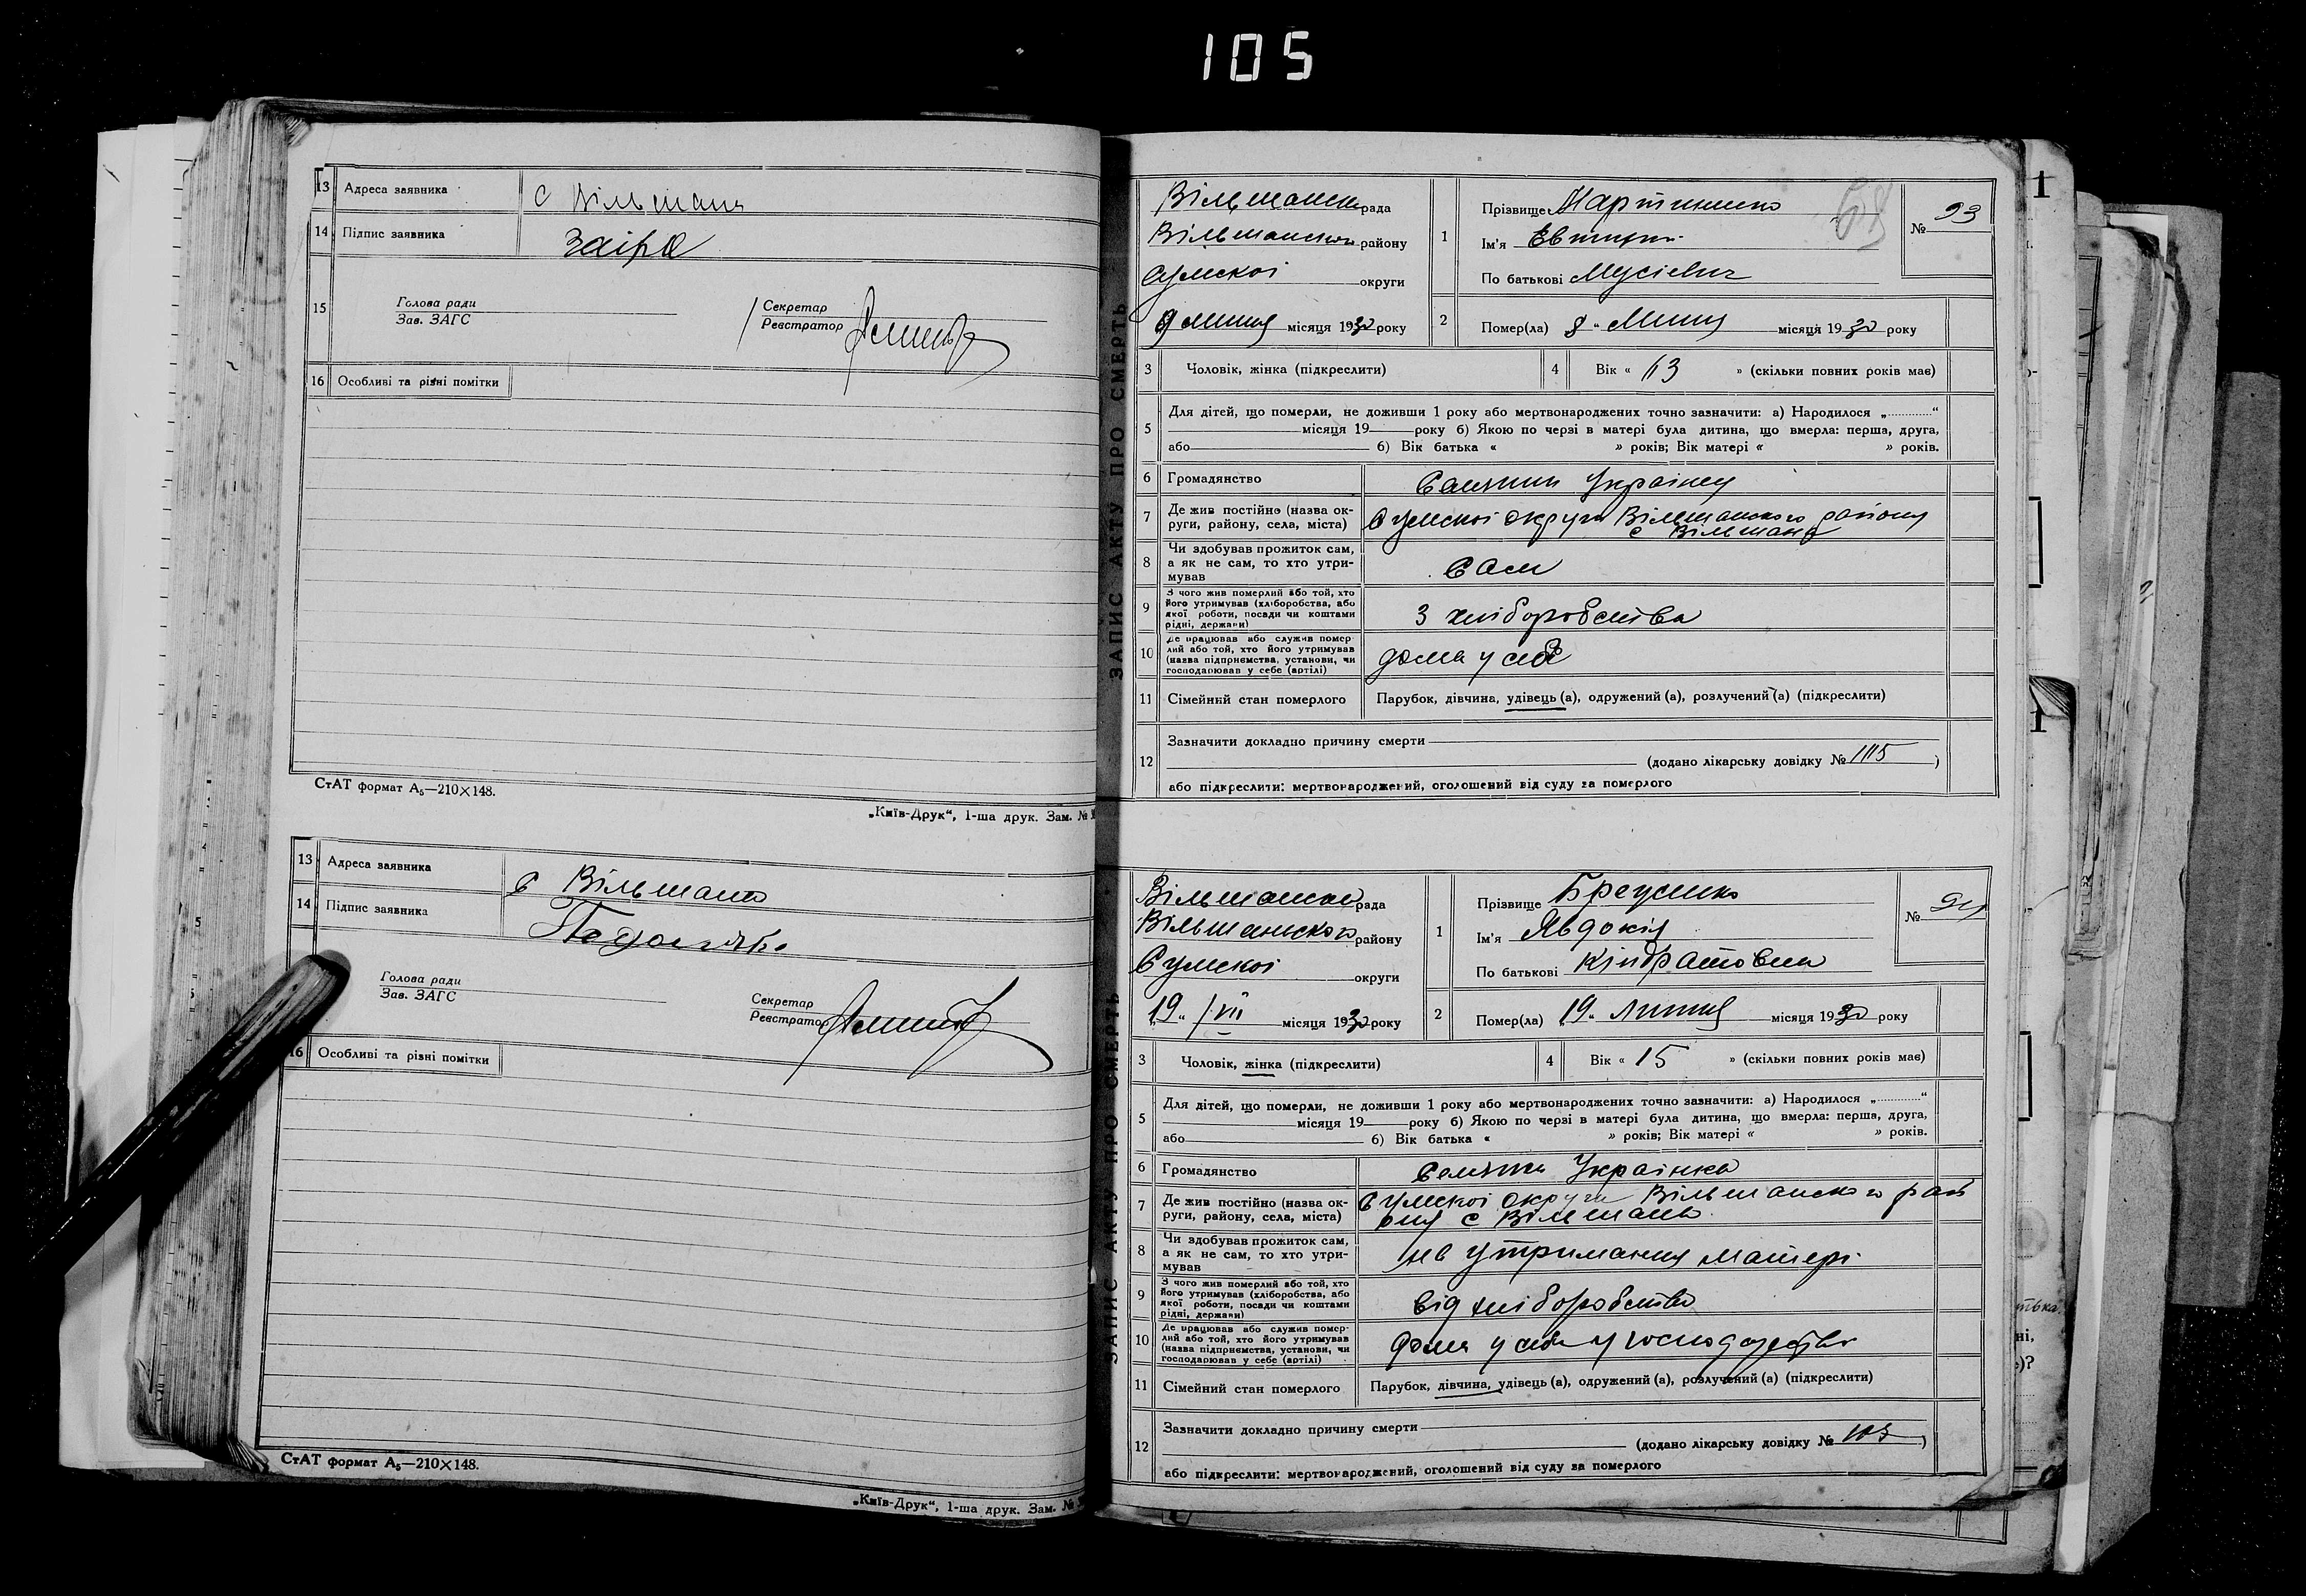 105
13 Адреса заявника с Вільшана
14 Підпис заявника Заіра
15 Голова ради
Зав. ЗАГС
Секретар
Реєстратор
16 Особливі та різні помітки
СтАТ формат А₅—210×148.
„Київ-Друк“, 1-ша друк. Зам. №
13 Адреса заявника с Вільшана
14 Підпис заявника
Голова ради
Зав. ЗАГС
Секретар
Реєстратор
16 Особливі та різні помітки
СтАТ формат А₅—210×148.
„Київ-Друк“, 1-ша друк. Зам. №
ЗАПИС АКТУ ПРО СМЕРТЬ
Вільшанська рада
Вільшанского району
Сумскоі округи
9 Липня місяця 1930 року
1 Прізвище Мартиненко
Ім'я Евтихій
По батькові Мусієвич
№ 93
2 Помер(ла) 8 „ Липня місяця 1930 року
3 Чоловік, жінка (підкреслити)
4 Вік « 63 » (скільки повних років має)
5 Для дітей, що померли, не доживши 1 року або мертвонароджених точно зазначити: а) Народилося „ “
місяця 19 року б) Якою по черзі в матері була дитина, що вмерла: перша, друга,
або б) Вік батька « » років; Вік матері « » років.
6 Громадянство Селянин Украінец
7 Де жив постійно (назва ок-
руги, району, села, міста) Сумскоі округи Вільшанского району
с Вільшана
8 Чи здобував прожиток сам,
а як не сам, то хто утри-
мував сам
9 З чого жив померлий або той, хто
його утримував (хліборобства, або
якої роботи, посади чи коштами
рідні, держави) З хліборобства
10 Де працював або служив помер-
лий або той, хто його утримував
(назва підприємства, установи, чи
господарював у себе (артілі) дома у себе
11 Сімейний стан померлого Парубок, дівчина, удівець (а), одружений (а), розлучений (а) (підкреслити)
12 Зазначити докладно причину смерти
(додано лікарську довідку № )
або підкреслити: мертвонароджений, оголошений від суду за померлого
ЗАПИС АКТУ ПРО СМЕРТЬ
Вільшанська рада
Вільшанського району
Сумскоі округи
„19„ /VII місяця 1930 року
1 Прізвище Бреусенко
Ім'я Явдокія
По батькові Кіндратовна
№ 94
2 Помер(ла) „19„ Липня місяця 1930 року
3 Чоловік, жінка (підкреслити)
4 Вік « 15 » (скільки повних років має)
5 Для дітей, що померли, не доживши 1 року або мертвонароджених точно зазначити: а) Народилося „ “
місяця 19 року б) Якою по черзі в матері була дитина, що вмерла: перша, друга,
або б) Вік батька « » років; Вік матері « » років.
6 Громадянство Селянка Украінка
7 Де жив постійно (назва ок-
руги, району, села, міста) Сумскоі округи Вільшанского рай
ону с Вільшана
8 Чи здобував прожиток сам,
а як не сам, то хто утри-
мував на утримання матері
9 З чого жив померлий або той, хто
його утримував (хліборобства, або
якої роботи, посади чи коштами
рідні, держави) від хліборобства
10 Де працював або служив помер-
лий або той, хто його утримував
(назва підприємства, установи, чи
господарював у себе (артілі) дома у себе у господарстві
11 Сімейний стан померлого Парубок, дівчина, удівець (а), одружений (а), розлучений (а) (підкреслити)
12 Зазначити докладно причину смерти
(додано лікарську довідку № )
або підкреслити: мертвонароджений, оголошений від суду за померлого